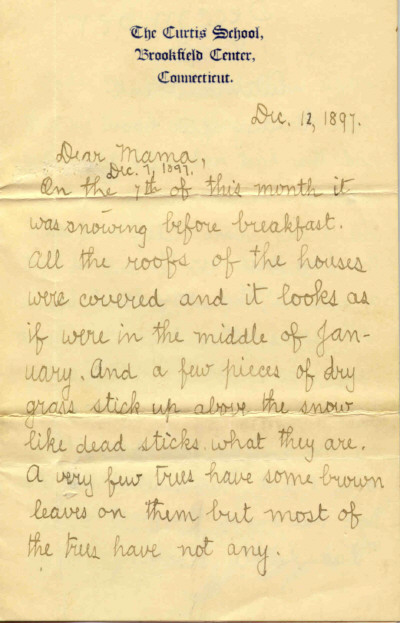 The Curtis School,
Brookfield Center,
Connecticut.
Dec. 12, 1897.
Dear Mama,
Dec. 7, 1897.
On the 7th of this month it
was snowing before breakfast.
All the roofs of the houses
were covered and it looks as
if were in the middle of Jan-
uary. And a few pieces of dry
grass stick up above the snow
like dead sticks what they are.
A very few trees have some brown
leaves on them but most of
the trees have not any.